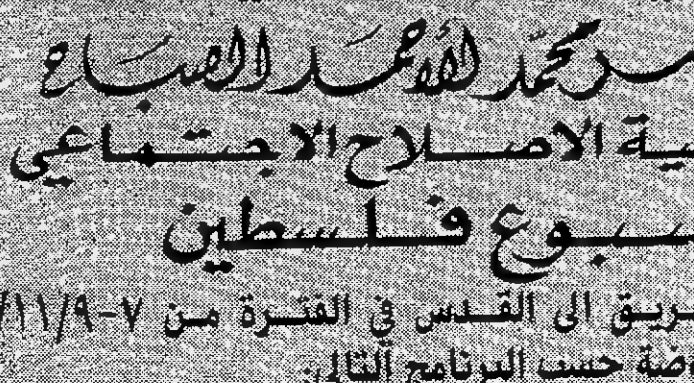 ـر محمد الأحمد الصباح
ـية الاصلاح الاجتماعي
ـبوع فلسطين
ـريق الى القدس في الفترة من ٧-١١/٩/
ـضة حسب البرنامج التالي: